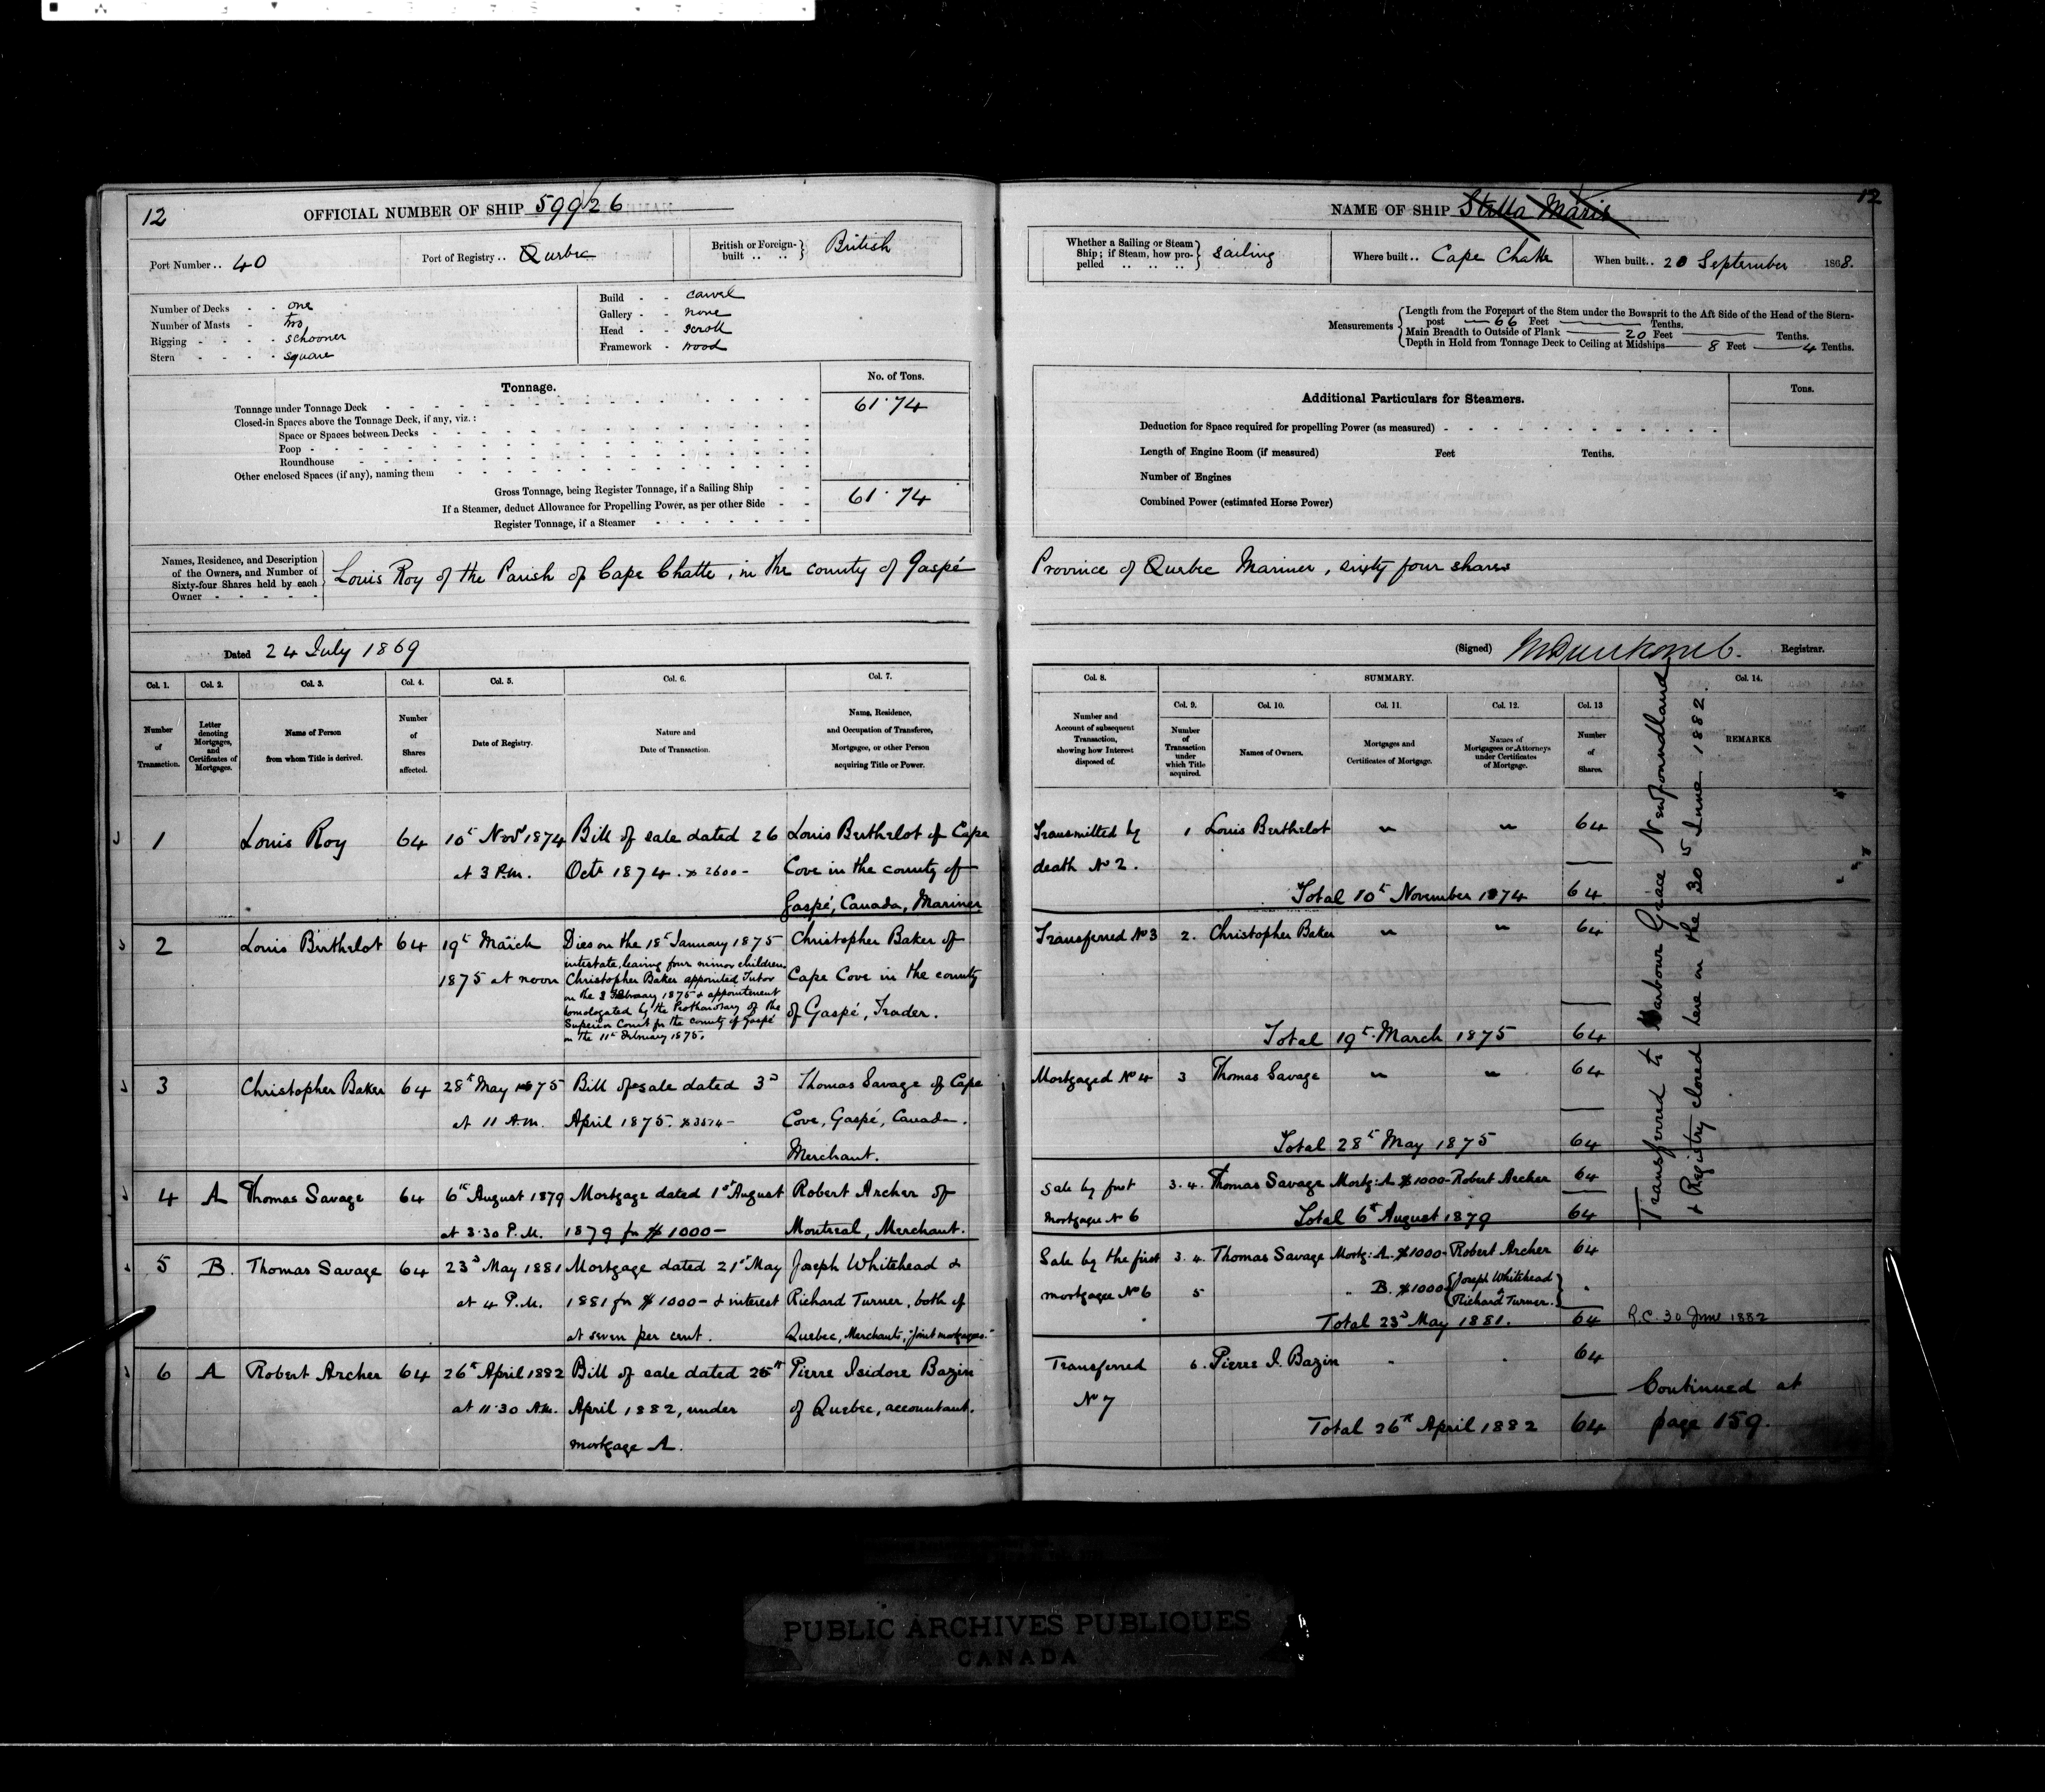 12
OFFICIAL NUMBER OF SHIP 59926
Port Number .. 40
Port of Registry .. Quebec
British or Foreign-built .. .. British
Number of Decks - - one
Number of Masts - two
Rigging - - - - schooner
Stern - - - - square
Build - - carvel
Gallery - - none
Head - - scroll
Framework - wood
Tonnage.
No. of Tons.
Tonnage under Tonnage Deck 61.74
Closed-in Spaces above the Tonnage Deck, if any, viz.:
Space or Spaces between Decks
Poop
Roundhouse
Other enclosed Spaces (if any), naming them
Gross Tonnage, being Register Tonnage, if a Sailing Ship 61.74
If a Steamer, deduct Allowance for Propelling Power, as per other Side
Register Tonnage, if a Steamer
Names, Residence, and Description
of the Owners, and Number of
Sixty-four Shares held by each
Owner
Louis Roy of the Parish of Cape Chatte, in the county of Gaspé
Dated 24 July 1869
Col. 1. Col. 2. Col. 3. Col. 4. Col. 5. Col. 6. Col. 7.
Number of Transaction.
Letter denoting Mortgages, and Certificates of Mortgages.
Name of Person from whom Title is derived.
Number of Shares affected.
Date of Registry.
Nature and Date of Transaction.
Name, Residence, and Occupation of Transferee, Mortgagee, or other Person acquiring Title or Power.
1 Louis Roy 64 10th Novr 1874 Bill of sale dated 26 Louis Berthelot of Cape
at 3 P.M. Octr 1874. $2600- Cove in the county of
Gaspé, Canada, Mariner
2 Louis Berthelot 64 19th March Dies on the 18th January 1875 Christopher Baker of
intestate, leaving four minor children,
1875 at noon Christopher Baker appointed Tutor Cape Cove in the county
on the 3 February 1875 & appointment
homologated by the Prothonotary of the of Gaspé, Trader.
Superior Court for the county of Gaspé
on the 11th February 1875.
3 Christopher Baker 64 28th May 1875 Bill of sale dated 3d Thomas Savage of Cape
at 11 A.M. April 1875. Cove, Gaspé, Canada.
Merchant.
4 A Thomas Savage 64 6th August 1879 Mortgage dated 1st August Robert Archer of
at 3.30 P.M. 1879 for $1000- Montreal, Merchant.
5 B. Thomas Savage 64 23d May 1881 Mortgage dated 21st May Joseph Whitehead &
at 4 P.M. 1881 for $1000- & interest Richard Turner, both of
at seven per cent. Quebec, Merchants, "joint mortgagees."
6 A Robert Archer 64 26th April 1882 Bill of sale dated 25th Pierre Isidore Bazin
at 11.30 A.M. April 1882, under of Quebec, accountant.
mortgage A.
12
NAME OF SHIP Stella Maris
Whether a Sailing or Steam
Ship; if Steam, how pro-
pelled .. .. .. sailing
Where built .. Cape Chatte
When built .. 20 September 1868.
Measurements
Length from the Forepart of the Stem under the Bowsprit to the Aft Side of the Head of the Stern-
post — 66 Feet — Tenths.
Main Breadth to Outside of Plank — 20 Feet — Tenths.
Depth in Hold from Tonnage Deck to Ceiling at Midships — 8 Feet — 4 Tenths.
Additional Particulars for Steamers.
Tons.
Deduction for Space required for propelling Power (as measured)
Length of Engine Room (if measured) Feet Tenths.
Number of Engines
Combined Power (estimated Horse Power)
Province of Quebec Mariner, sixty four shares
(Signed) Registrar.
Col. 8. SUMMARY. Col. 14.
Col. 9. Col. 10. Col. 11. Col. 12. Col. 13
Number and Account of subsequent Transaction, showing how Interest disposed of.
Number of Transaction under which Title acquired.
Names of Owners.
Mortgages and Certificates of Mortgage.
Names of Mortgagees or Attorneys under Certificates of Mortgage.
Number of Shares.
REMARKS.
Transmitted by 1 Louis Berthelot " " 64
death No 2.
Total 10th November 1874 64
Transferred No 3 2. Christopher Baker " " 64
Total 19th March 1875 64
Mortgaged No 4 3 Thomas Savage " " 64
Total 28th May 1875 64
Sale by first 3. 4. Thomas Savage Mortg: A $1000- Robert Archer 64
mortgagee No 6 Total 6th August 1879 64
Sale by the first 3. 4. Thomas Savage Mortg: A. $1000- Robert Archer 64
mortgagee No 6 5 " B. $1000- Joseph Whitehead & Richard Turner. "
Total 23d May 1881. 64
Transferred 6. Pierre I. Bazin " " 64
No 7
Total 26th April 1882 64
Transferred to Harbour Grace Newfoundland
& Registry closed here on the 30th June 1882.
R.C. 30 June 1882
Continued at
page 159.
PUBLIC ARCHIVES PUBLIQUES
CANADA